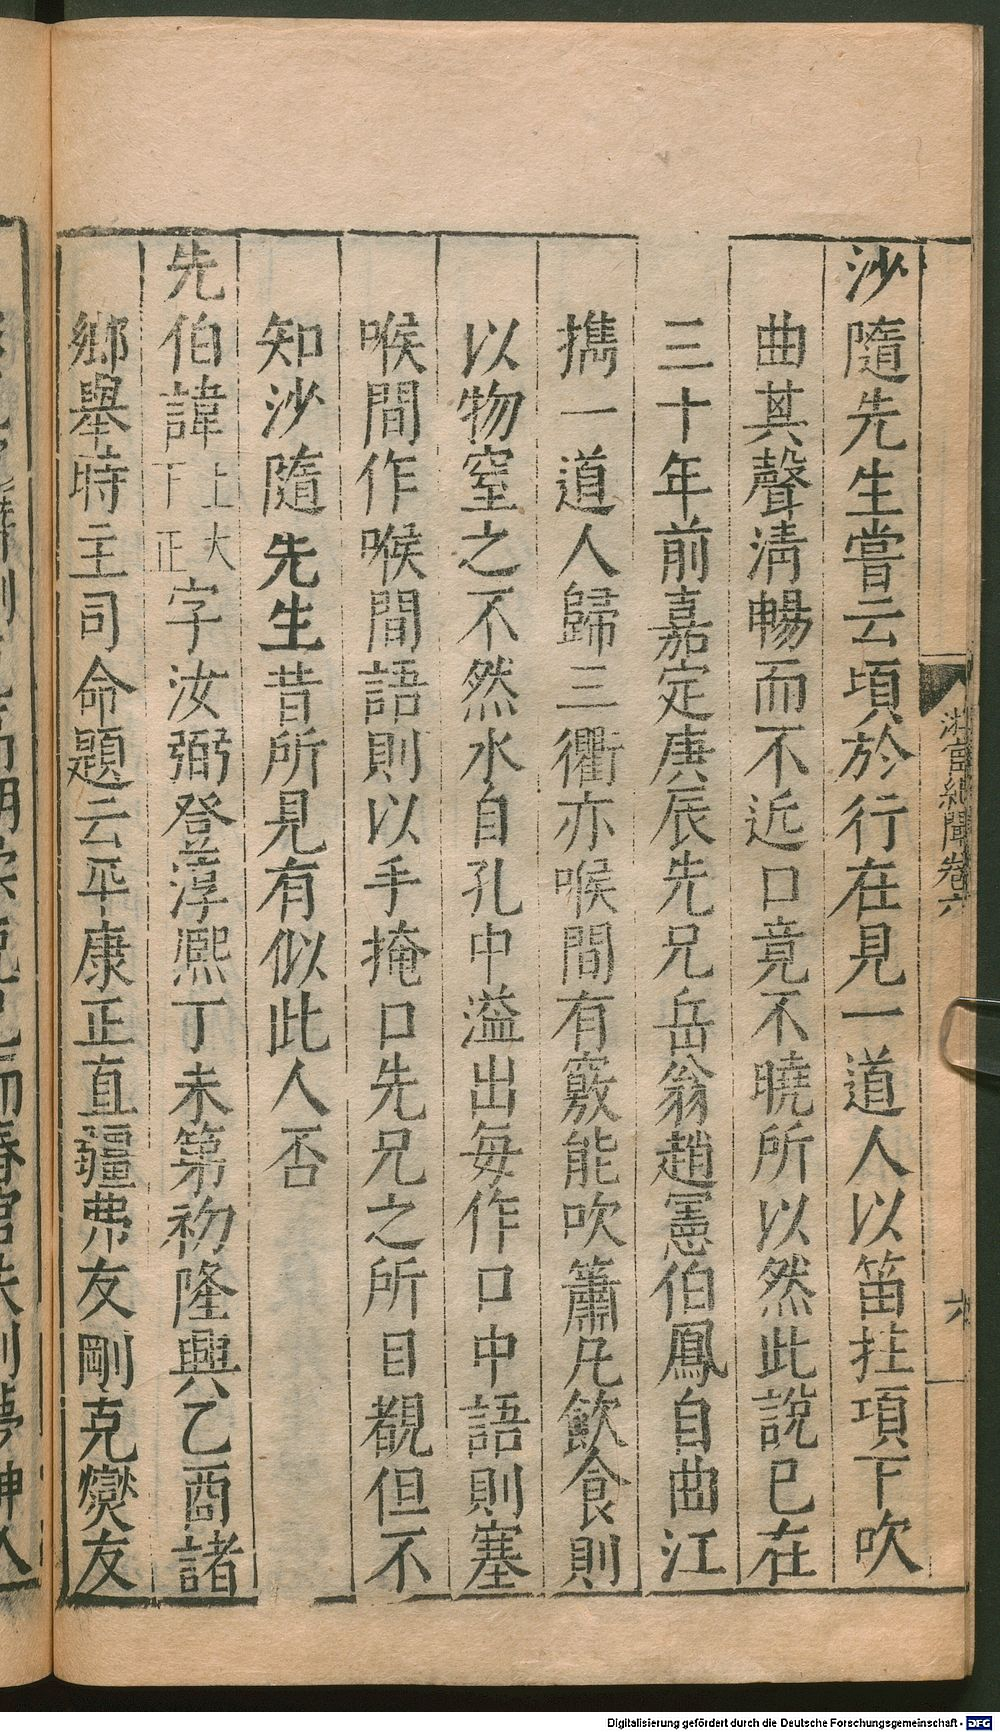 沙隨先生嘗云頃於行在見一道人以笛拄項下吹
曲其聲清暢而不近口竟不曉所以然此說已在
三十年前嘉定庚辰先兄岳翁趙憲伯鳳自曲江
攜一道人歸三衢亦喉間有竅能吹簫凡飲食則
以物窒之不然水自孔中溢出每作口中語則塞
喉間作喉間語則以手掩口先兄之所目覩但不
知沙隨先生昔所見有似此人否
先伯諱上大下正字汝弼登淳熙丁未第初隆興乙酉諸
鄉舉時主司命題云平康正直彊弗友剛克燮友
卷六
六
Digitalisierung gefördert durch die Deutsche Forschungsgemeinschaft - DFG